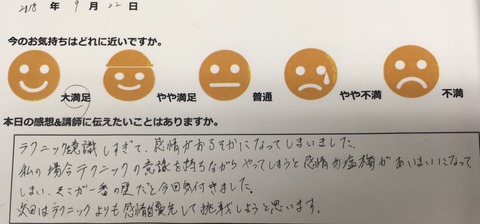 2018 年 9 月 22 日
今のお気持ちはどれに近いですか。
大満足 やや満足 普通 やや不満 不満
本日の感想&講師に伝えたいことはありますか。
テクニック意識しすぎて、感情がおろそかになってしまいました。
私の場合テクニックの意識を持ちながらやってしまうと感情も があいまいになって
しまい、そこが一番の壁だと今回気付きました。
次回はテクニックよりも感情優先して挑戦しようと思います。